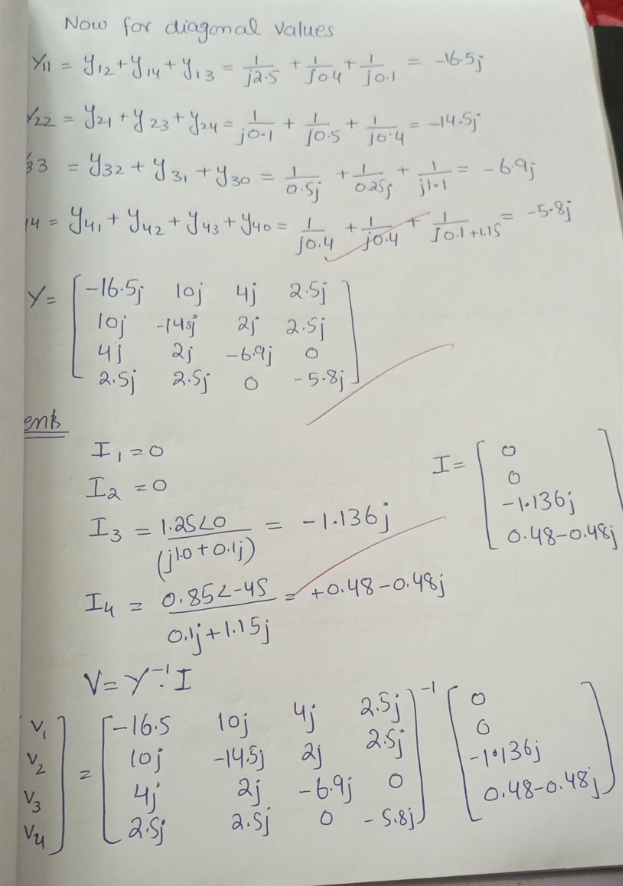 Now for diagonal values
Y11 = y12 + y14 + y13 = 1/j2.5 + 1/j0.4 + 1/j0.1 = -16.5j
Y22 = y21 + y23 + y24 = 1/j0.1 + 1/j0.5 + 1/j0.4 = -14.5j
33 = y32 + y31 + y30 = 1/0.5j + 1/0.25j + 1/j1.1 = -6.9j
44 = y41 + y42 + y43 + y40 = 1/j0.4 + 1/j0.4 + 1/j0.1+1.15 = -5.8j
Y = [ -16.5j 10j 4j 2.5j
10j -14.5j 2j 2.5j
4j 2j -6.9j 0
2.5j 2.5j 0 -5.8j ]
ents
I1 = 0
I2 = 0
I3 = 1.25∠0 / (j1.0 + 0.1j) = -1.136j
I4 = 0.85∠-45 / 0.1j + 1.15j = +0.48-0.48j
I = [ 0
0
-1.136j
0.48-0.48j ]
V = Y⁻¹. I
V1
V2
V3
V4 ] = [ -16.5 10j 4j 2.5j
10j -14.5j 2j 2.5j
4j 2j -6.9j 0
2.5j 2.5j 0 -5.8j ]⁻¹ [ 0
0
-1.136j
0.48-0.48j ]